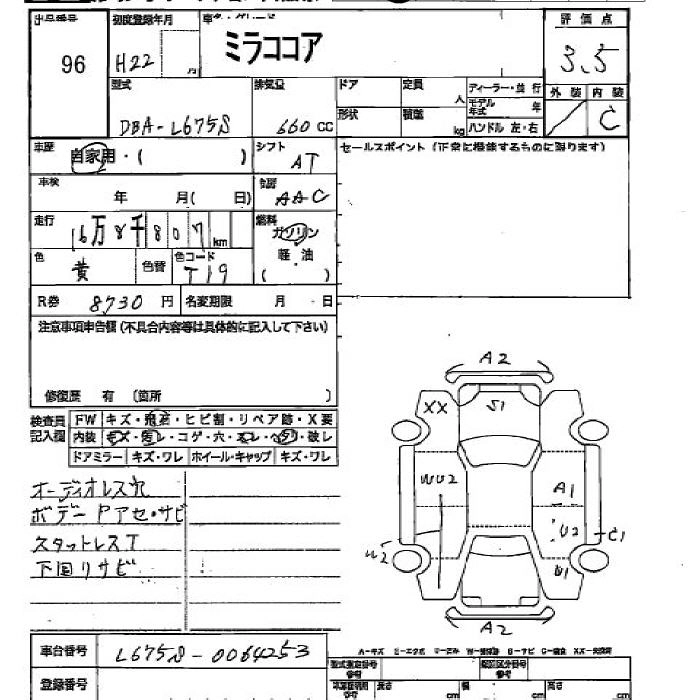 出品番号 初度登録年月 車名・グレード 評価点
96 H22 月 ミラココア 3.5
型式 排気量 ドア 定員 人 ディーラー・並行 外装 内装
モデル年式 年
DBA-L675S 660cc 形状 積載 kg ハンドル 左・右 C
車歴 自家用・( ) シフト AT セールスポイント (正常に機能するものに限ります)
車検 年 月( 日) 冷房 AAC
走行 16万8千807km 燃料 ガソリン
軽・油
( )
色 黄 色替 色コード T19
R券 8730円 名変期限 月 日
注意事項申告欄(不具合内容等は具体的に記入して下さい)
修復歴 有 (箇所 )
検査員記入欄 FW キズ・飛石・ヒビ割・リペア跡・X要
内装 キズ・汚レ・コゲ・穴・スレ・ヘタリ・破レ
ドアミラー キズ・ワレ ホイール・キャップ キズ・ワレ
オーディオレス穴
ボデー Pアセ・サビ
スタットレスT
下回リサビ
A2
XX S1
WU2 A1
U2 C1
W2 U1
A2
車台番号 L675S-0064253
A-キズ E-エクボ U-凹み W-補修跡 S-サビ C-腐食 XX-交換済
登録番号 型式指定番号 参考 類別区分番号 参考
長さ cm 幅 cm 高さ cm